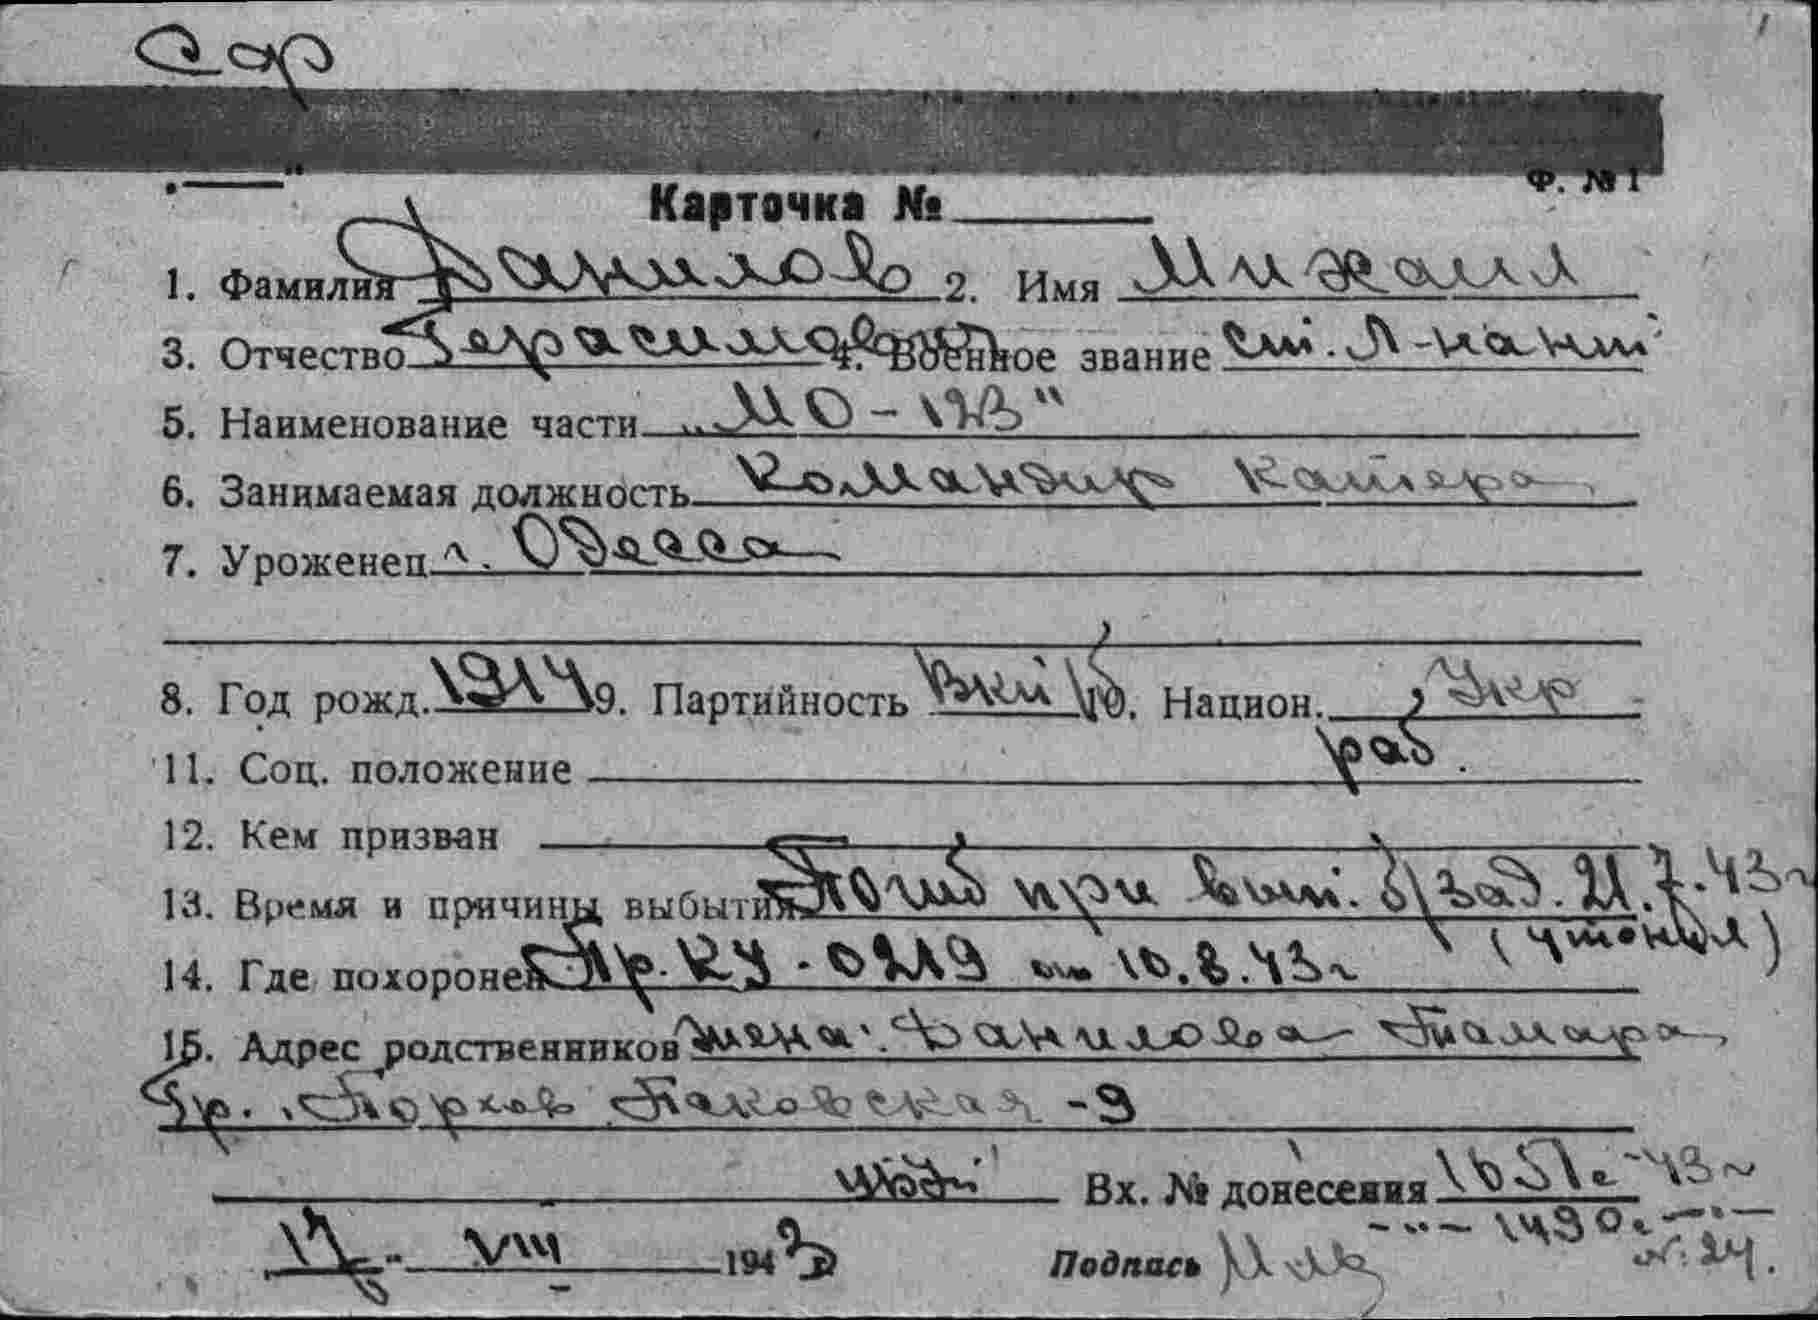 Ф. № 1
Карточка №
1. Фамилия Данилов 2. Имя Михаил
3. Отчество Герасимович 4. Военное звание Ст. Л-нант
5. Наименование части „МО-123"
6. Занимаемая должность Командир катера
7. Уроженец г. Одесса
8. Год рожд. 1914 9. Партийность ВКП/б 10. Национ. Укр
11. Соц. положение раб.
12. Кем призван
13. Время и причины выбытия Погиб при вып. б/зад. 21.7.43г
(утонул)
14. Где похоронен Пр. КУ-0219 от 10.8.43г
15. Адрес родственников жена: Данилова Тамара
Гр. Порхов -9
Вх. № донесения 1651с-43г
-"- 1490с -"-
17 VIII 1943 Подпись
л. 24.